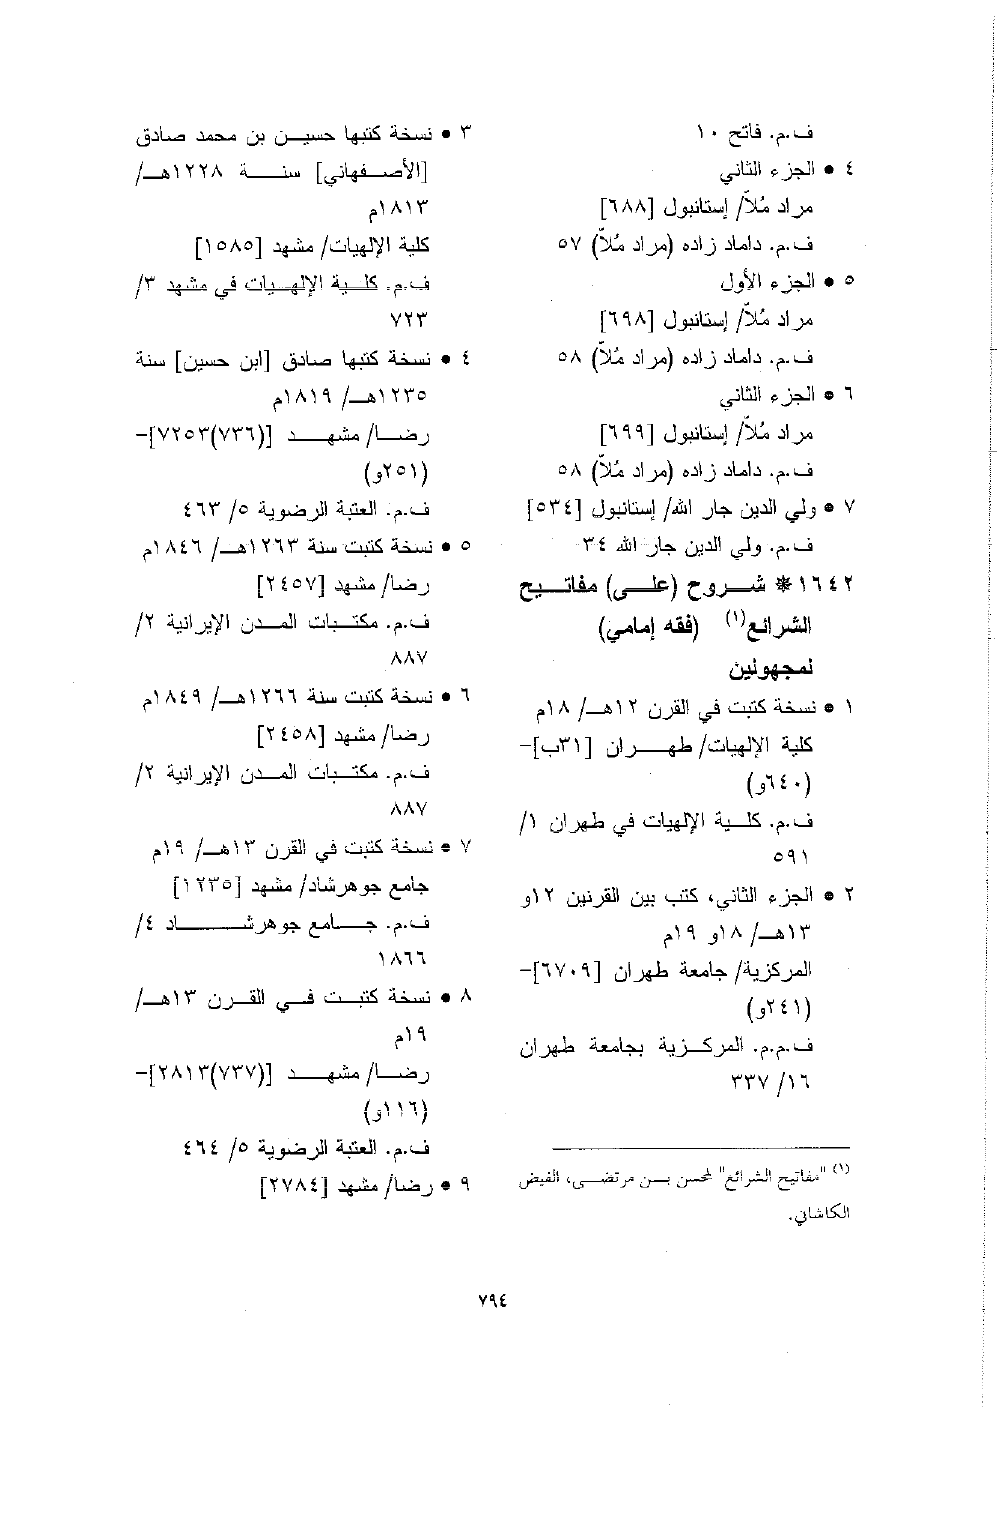 ف.م. فاتح ١٠
٤ • الجزء الثاني
مراد مُلاّ/ إستانبول [٦٨٨]
ف.م. داماد زاده (مراد مُلاّ) ٥٧
٥ • الجزء الأول
مراد مُلاّ/ إستانبول [٦٩٨]
ف.م. داماد زاده (مراد مُلاّ) ٥٨
٦ • الجزء الثاني
مراد مُلاّ/ إستانبول [٦٩٩]
ف.م. داماد زاده (مراد مُلاّ) ٥٨
٧ • ولي الدين جار الله/ إستانبول [٥٣٤]
ف.م. ولي الدين جار الله ٣٤
١٦٤٢ * شـــروح (علـــى) مفاتـــيح
الشرائع(١) (فقه إمامي)
لمجهولين
١ • نسخة كتبت في القرن ١٢هــ/ ١٨م
كلية الإلهيات/ طهـــران [٣١ب]–
(٦٤٠و)
ف.م. كلــية الإلهيات في طهران ١/
٥٩١
٢ • الجزء الثاني، كتب بين القرنين ١٢و
١٣هــ/ ١٨و ١٩م
المركزية/ جامعة طهران [٦٧٠٩]–
(٢٤١و)
ف.م.م. المركــزية بجامعة طهران
١٦/ ٣٣٧
(١) "مفاتيح الشرائع" لمحسن بــن مرتضــى، الفيض
الكاشاني.
٣ • نسخة كتبها حسيــن بن محمد صادق
[الأصــفهاني] سنــــة ١٢٢٨هــ/
١٨١٣م
كلية الإلهيات/ مشهد [١٥٨٥]
ف.م. كلــية الإلهــيات في مشهد ٣/
٧٢٣
٤ • نسخة كتبها صادق [ابن حسين] سنة
١٢٣٥هــ/ ١٨١٩م
رضــا/ مشهــــد [(٧٣٦)٧٢٥٣]–
(٢٥١و)
ف.م. العتبة الرضوية ٥/ ٤٦٣
٥ • نسخة كتبت سنة ١٢٦٣هــ/ ١٨٤٦م
رضا/ مشهد [٢٤٥٧]
ف.م. مكتــبات المــدن الإيرانية ٢/
٨٨٧
٦ • نسخة كتبت سنة ١٢٦٦هــ/ ١٨٤٩م
رضا/ مشهد [٢٤٥٨]
ف.م. مكتــبات المــدن الإيرانية ٢/
٨٨٧
٧ • نسخة كتبت في القرن ١٣هــ/ ١٩م
جامع جوهرشاد/ مشهد [١٢٣٥]
ف.م. جـــامع جوهرشـــــــاد ٤/
١٨٦٦
٨ • نسخة كتبــت فــي القــرن ١٣هــ/
١٩م
رضــا/ مشهــــد [(٧٣٧)٢٨١٣]–
(١١٦و)
ف.م. العتبة الرضوية ٥/ ٤٦٤
٩ • رضا/ مشهد [٢٧٨٤]
٧٩٤